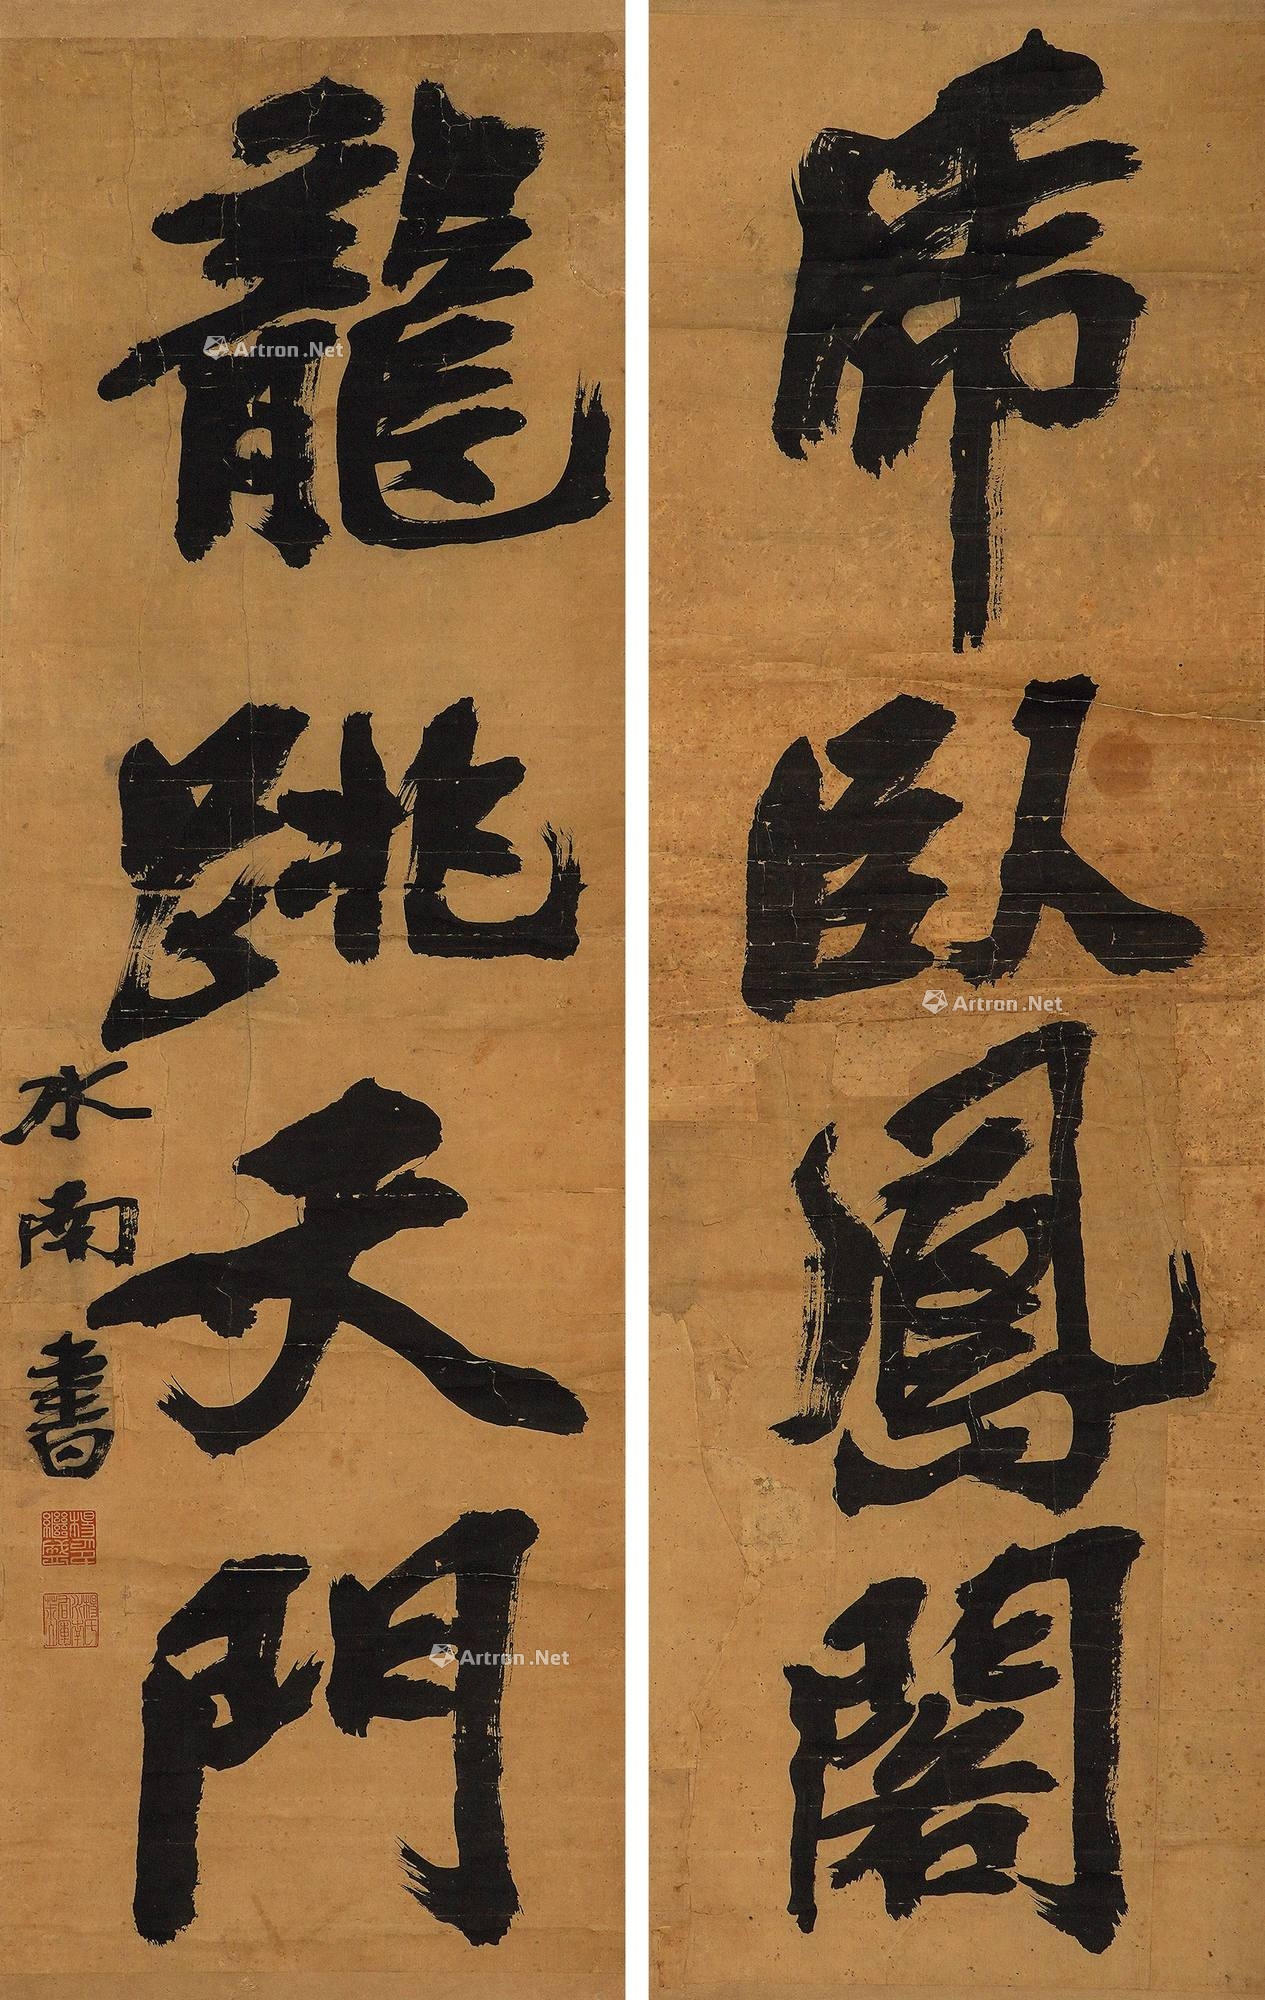 虎卧鳳閣
龍跳天門
水南書
楊繼盛印
Artron.Net
Artron.Net
Artron.Net